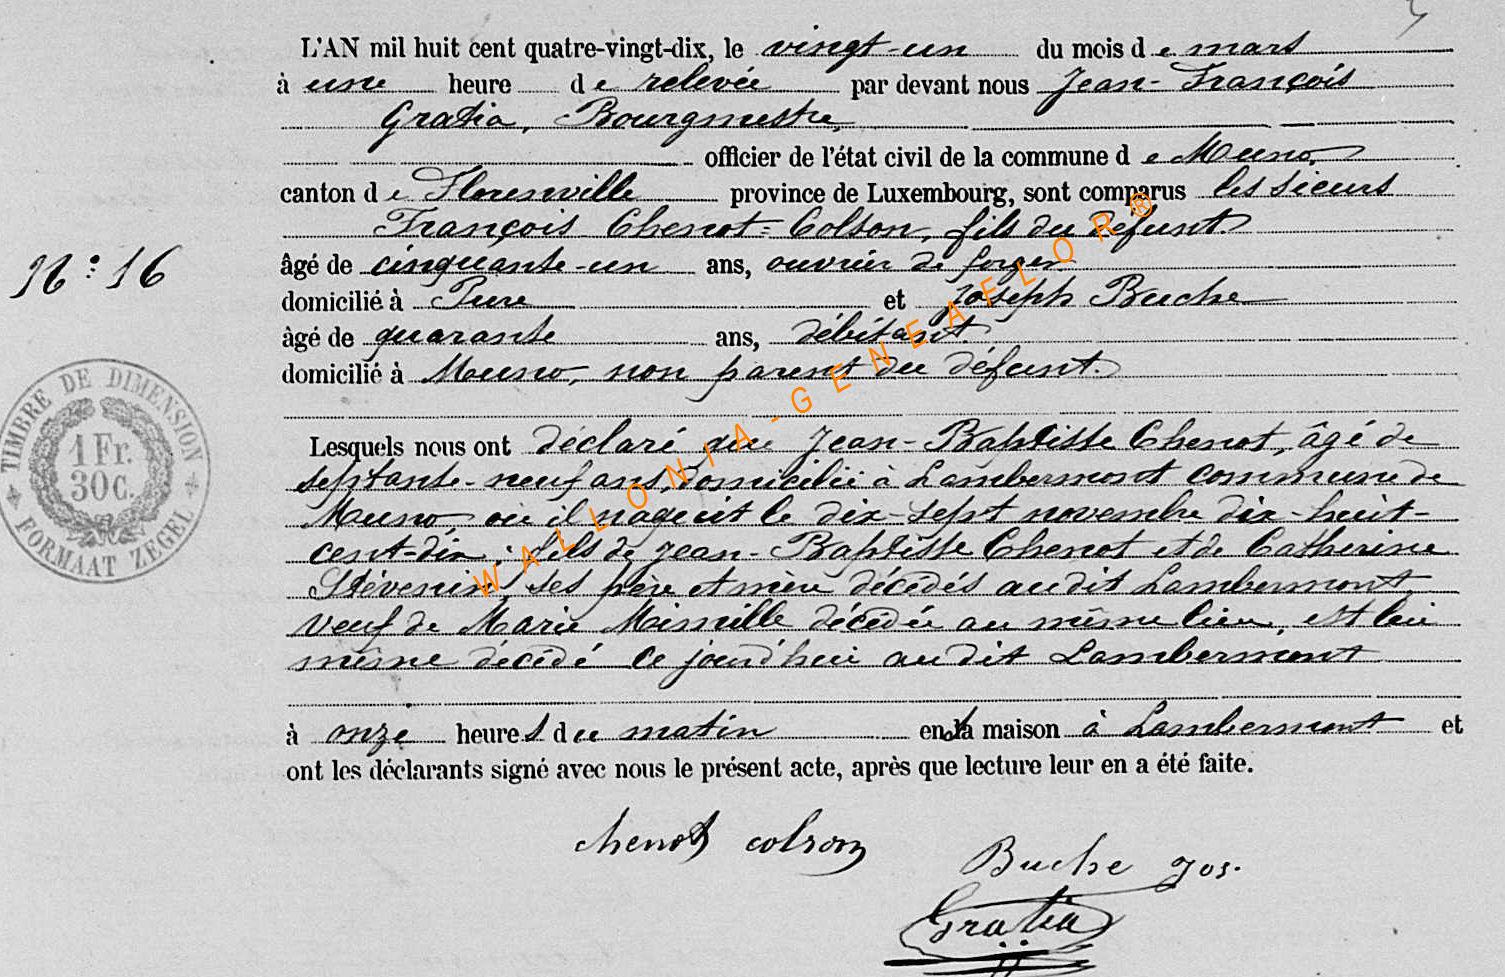 L'AN mil huit cent quatre-vingt-dix, le vingt-un du mois de mars
à une heure de relevée par devant nous Jean-François
Gratia, Bourgmestre,
officier de l'état civil de la commune de Muno,
canton de Florenville province de Luxembourg, sont comparus les sieurs
François Chenot=Colson, fils du défunt
N°: 16
âgé de cinquante-un ans, ouvrier de forges
domicilié à Pure et Joseph Buche
âgé de quarante ans, débitant
domicilié à Muno, non parent du défunt.
TIMBRE DE DIMENSION
1 Fr.
30 C.
FORMAAT ZEGEL
Lesquels nous ont déclaré que Jean-Baptiste Chenot, âgé de
septante-neuf ans, domicilié à Lambermont commune de
Muno, où il naquit le dix-sept novembre dix-huit-
cent-dix; fils de Jean-Baptiste Chenot et de Catherine
Stévenin, ses père et mère décédés audit Lambermont,
veuf de Marie décédée au même lieu, est lui
même décédé ce jourd'hui audit Lambermont
à onze heures du matin en sa maison à Lambermont et
ont les déclarants signé avec nous le présent acte, après que lecture leur en a été faite.
chenot colson
Buche Jos.
Gratia
WALLONIA-GENEAFLOR®